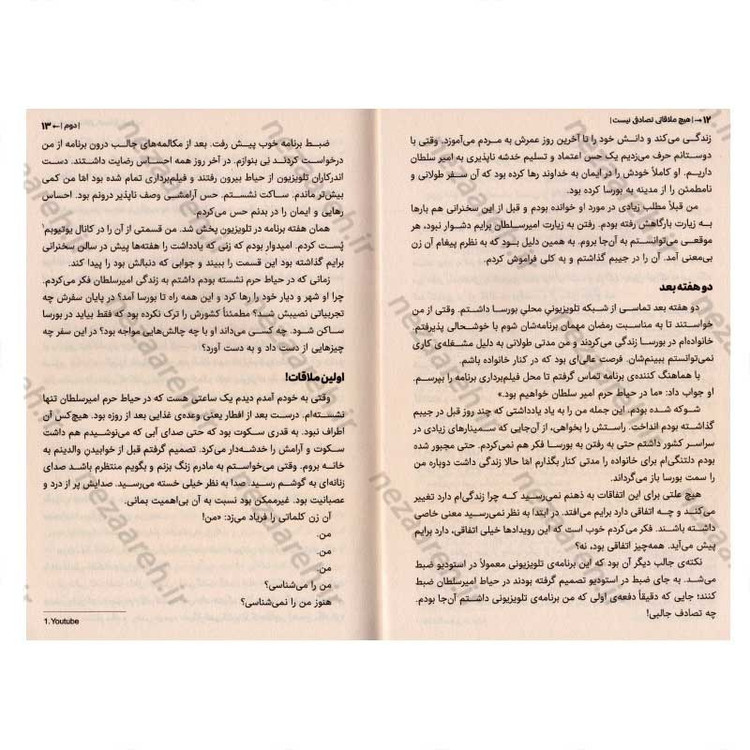 ۱۲ → | هیچ ملاقاتی تصادفی نیست |
زندگی می‌کند و دانش خود را تا آخرین روز عمرش به مردم می‌آموزد. وقتی با
دوستانم حرف می‌زدیم یک حس اعتماد و تسلیم خدشه ناپذیری به امیر سلطان
داریم. او کاملاً خودش را در ایمان به خداوند رها کرده بود که آن سفر طولانی و
نامطمئن را از مدینه به بورسا کرده بود.
من قبلاً مطلب زیادی در مورد او خوانده بودم و قبل از این سخنرانی هم بارها
به زیارت بارگاهش رفته بودم. رفتن به زیارت امیرسلطان برایم دشوار نبود، هر
موقعی می‌توانستم به آن‌جا بروم. به همین دلیل بود که به نظرم پیغام آن زن
بی‌معنی آمد. آن را در جیبم گذاشتم و به کلی فراموش کردم.
دو هفته بعد
دو هفته بعد تماسی از شبکه تلویزیونیِ محلیِ بورسا داشتم. وقتی از من
خواستند تا به مناسبت رمضان مهمان برنامه‌شان شوم با خوشحالی پذیرفتم.
خانواده‌ام در بورسا زندگی می‌کردند و من مدتی طولانی به دلیل مشغله‌ی کاری
نمی‌توانستم ببینم‌شان. فرصت عالی‌ای بود که در کنار خانواده باشم.
با هماهنگ کننده‌ی برنامه تماس گرفتم تا محل فیلم‌برداری برنامه را بپرسم.
او جواب داد: «ما در حیاط حرم امیر سلطان خواهیم بود.»
شوکه شده بودم. این جمله من را به یاد یادداشتی که چند روز قبل در جیبم
گذاشته بودم انداخت. راستش را بخواهی، از آن‌جایی که سمینارهای زیادی در
سراسر کشور داشتم حتی به رفتن به بورسا فکر هم نمی‌کردم. حتی مجبور شده
بودم دلتنگی‌ام برای خانواده را مدتی کنار بگذارم امّا حالا زندگی داشت دوباره من
را سمت بورسا باز می‌گرداند.
هیچ علتی برای این اتفاقات به ذهنم نمی‌رسید که چرا زندگی‌ام دارد تغییر
می‌کند و چه اتفاقی دارد برایم می‌افتد. در ابتدا به نظر نمی‌رسید معنی خاصی
داشته باشند. فکر می‌کردم خوب است که این رویدادها خیلی اتفاقی، دارد برایم
پیش می‌آید. همه‌چیز اتفاقی بود، نه؟
نکته‌ی جالب دیگر آن بود که این برنامه‌ی تلویزیونی معمولاً در استودیو ضبط
می‌شد. به جای ضبط در استودیو تصمیم گرفته بودند در حیاط امیرسلطان ضبط
کنند؛ جایی که دقیقاً دفعه‌ی اولی که من برنامه‌ی تلویزیونی داشتم آن‌جا بودم.
چه تصادف جالبی!
| دوم | ← ۱۳
ضبط برنامه خوب پیش رفت. بعد از مکالمه‌های جالب درون برنامه از من
درخواست کردند نِی بنوازم. در آخر روز همه احساس رضایت داشتند. دست
اندرکاران تلویزیون از حیاط بیرون رفتند و فیلم‌برداری تمام شده بود امّا من کمی
بیش‌تر ماندم. ساکت نشستم. حس آرامشی وصف ناپذیر درونم بود. احساس
رهایی و ایمان را در بدنم حس می‌کردم.
همان هفته برنامه در تلویزیون پخش شد. من قسمتی از آن را در کانال یوتیوبم۱
پُست کردم. امیدوار بودم که زنی که یادداشت را هفته‌ها پیش در سالن سخنرانی
برایم گذاشته بود این قسمت را ببیند و جوابی که دنبالش بود را پیدا کند.
زمانی که در حیاط حرم نشسته بودم داشتم به زندگی امیرسلطان فکر می‌کردم.
چرا او شهر و دیار خود را رها کرد و این همه راه تا بورسا آمد؟ در پایان سفرش چه
تجربیاتی نصیبش شد؟ مطمئناً کشورش را ترک نکرده بود که فقط بیاید در بورسا
ساکن شود. چه کسی می‌داند او با چه چالش‌هایی مواجه بود؟ در این سفر چه
چیزهایی از دست داد و به دست آورد؟
اولین ملاقات!
وقتی به خودم آمدم دیدم یک ساعتی هست که در حیاط حرم امیرسلطان تنها
نشسته‌ام. درست بعد از افطار یعنی وعده‌ی غذایی بعد از روزه بود. هیچ‌کس آن
اطراف نبود. به قدری سکوت بود که حتی صدای آبی که می‌نوشیدم هم داشت
سکوت و آرامش را خدشه‌دار می‌کرد. تصمیم گرفتم قبل از خوابیدنِ والدینم به
خانه بروم. وقتی می‌خواستم به مادرم زنگ بزنم و بگویم منتظرم باشد صدای
زنانه‌ای به گوشم رسید. صدا به نظر خیلی خسته می‌رسید. صدایش پر از درد و
عصبانیت بود. غیرممکن بود نسبت به آن بی‌اهمیت بمانی.
آن زن کلماتی را فریاد می‌زد: «من!
من.
من.
من.
من را می‌شناسی؟
هنوز من را نمی‌شناسی؟
1. Youtube
nezaareh.ir